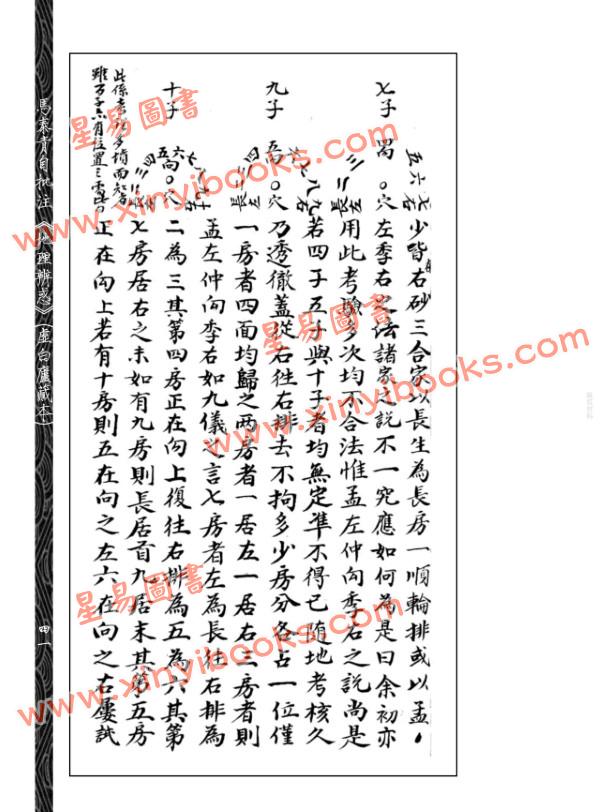 少皆看右砂三合家以長生為長房一順輪排或以孟
穴左季右之法諸家之說不一究應如何為是曰余初亦
用此考驗多次均不合法惟孟左仲向季右之說尚是
若四子五子與十子者均無定準不得已隨地考核久
乃透徹蓋從右往右排去不拘多少房分各占一位僅
一房者四面均歸之两房者一居左一居右三房者則
孟左仲向季右如九儀之言七房者左為長往右排為
二為三其第四房正在向上復往右排為五為六其第
七房居右之末如有九房則長居首九居末其第五房
正在向上若有十房則五在向之左六在向之右屢試
七子
九子
十子
馬泰青自批注《地理辨惑》(虛白廬藏本)
四一
星易圖書
www.xinyibooks.com
星易圖書
www.xinyibooks.com
星易圖書
www.xinyibooks.com
星易圖書
www.xinyibooks.com